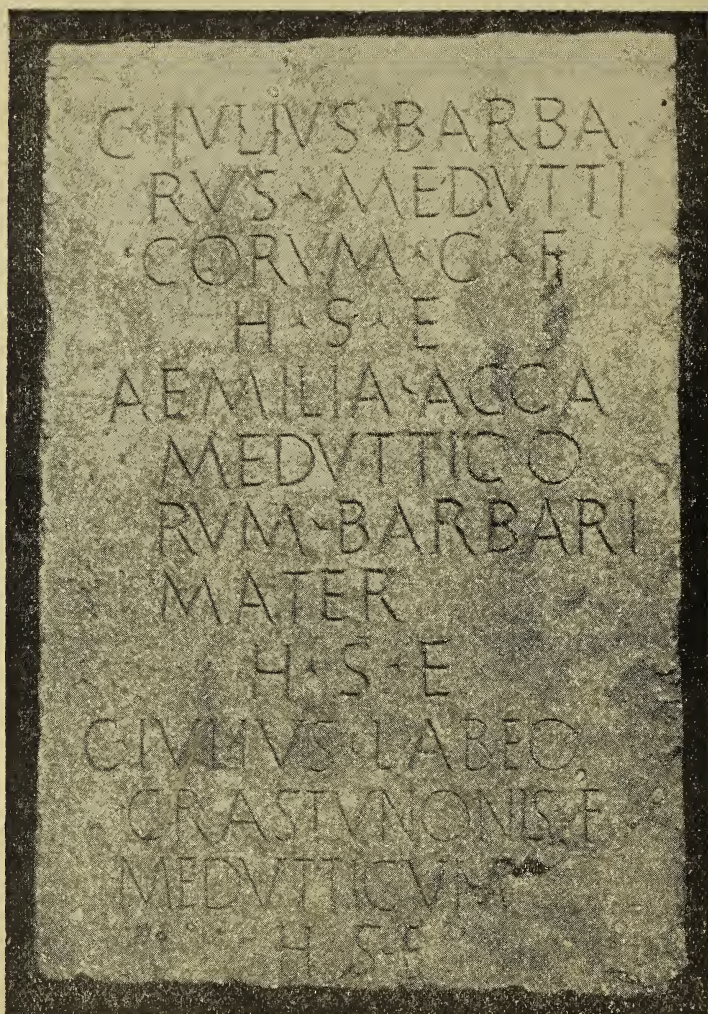 C·IVLIVS·BARBA
RVS·MEDVTTI
CORVM·C·F
H·S·E
AEMILIA·ACCA
MEDVTTICO
RVM·BARBARI
MATER
H·S·E
C·IVLIVS·LABEO
CRASTVNONIS·F
MEDVTTICVM
H·S·E